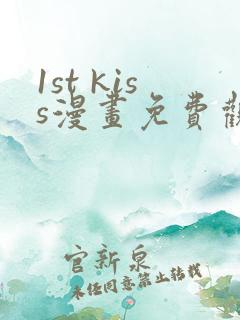 1st kis
s漫畫免費觀
官新泉
未经同意禁止转载